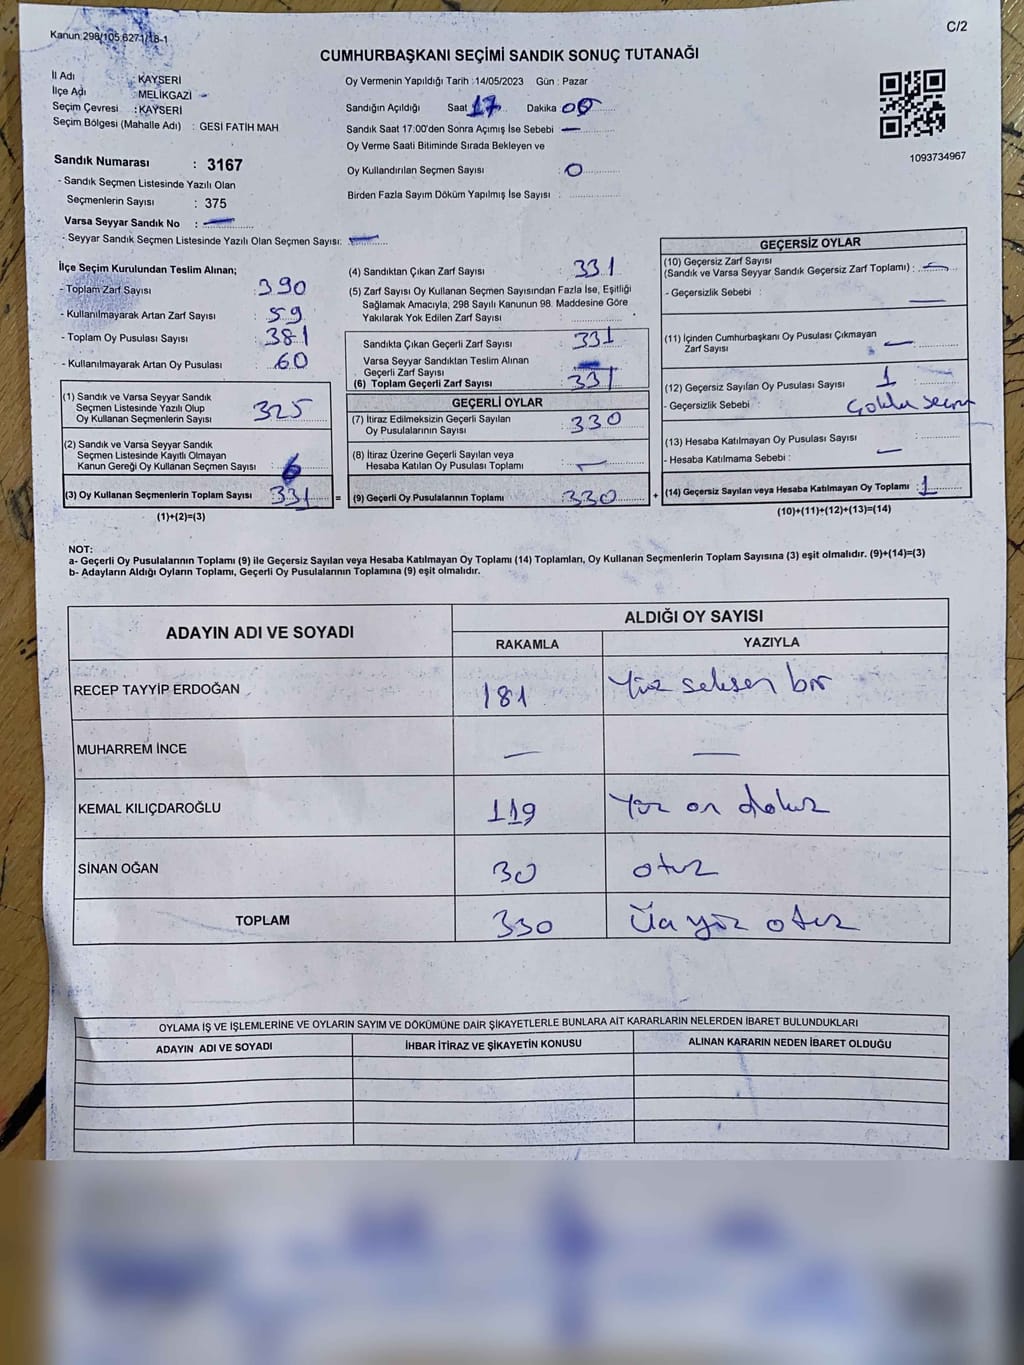 Kanun 298/105,6271/18-1
C/2
CUMHURBAŞKANI SEÇİMİ SANDIK SONUÇ TUTANAĞI
İl Adı : KAYSERİ
İlçe Adı : MELİKGAZİ
Seçim Çevresi : KAYSERİ
Seçim Bölgesi (Mahalle Adı) : GESİ FATİH MAH
Oy Vermenin Yapıldığı Tarih :14/05/2023 Gün : Pazar
Sandığın Açıldığı Saat 17 Dakika 00
Sandık Saat 17:00'den Sonra Açımış İse Sebebi —
Oy Verme Saati Bitiminde Sırada Bekleyen ve
Oy Kullandırılan Seçmen Sayısı : 0
Birden Fazla Sayım Döküm Yapılmış İse Sayısı :
1093734967
Sandık Numarası : 3167
- Sandık Seçmen Listesinde Yazılı Olan
Seçmenlerin Sayısı : 375
Varsa Seyyar Sandık No : —
- Seyyar Sandık Seçmen Listesinde Yazılı Olan Seçmen Sayısı: —
İlçe Seçim Kurulundan Teslim Alınan;
- Toplam Zarf Sayısı : 390
- Kullanılmayarak Artan Zarf Sayısı : 59
- Toplam Oy Pusulası Sayısı : 381
- Kullanılmayarak Artan Oy Pusulası : 60
(1) Sandık ve Varsa Seyyar Sandık
Seçmen Listesinde Yazılı Olup
Oy Kullanan Seçmenlerin Sayısı 325
(2) Sandık ve Varsa Seyyar Sandık
Seçmen Listesinde Kayıtlı Olmayan
Kanun Gereği Oy Kullanan Seçmen Sayısı 6
(3) Oy Kullanan Seçmenlerin Toplam Sayısı 331 =
(1)+(2)=(3)
(4) Sandıktan Çıkan Zarf Sayısı 331
(5) Zarf Sayısı Oy Kullanan Seçmen Sayısından Fazla İse, Eşitliği
Sağlamak Amacıyla, 298 Sayılı Kanunun 98. Maddesine Göre
Yakılarak Yok Edilen Zarf Sayısı :
Sandıkta Çıkan Geçerli Zarf Sayısı : 331
Varsa Seyyar Sandıktan Teslim Alınan
Geçerli Zarf Sayısı : —
(6) Toplam Geçerli Zarf Sayısı : 331
GEÇERLİ OYLAR
(7) İtiraz Edilmeksizin Geçerli Sayılan
Oy Pusulalarının Sayısı : 330
(8) İtiraz Üzerine Geçerli Sayılan veya
Hesaba Katılan Oy Pusulası Toplamı : —
(9) Geçerli Oy Pusulalarının Toplamı : 330 +
GEÇERSİZ OYLAR
(10) Geçersiz Zarf Sayısı
(Sandık ve Varsa Seyyar Sandık Geçersiz Zarf Toplamı) : —
- Geçersizlik Sebebi : —
(11) İçinden Cumhurbaşkanı Oy Pusulası Çıkmayan
Zarf Sayısı : —
(12) Geçersiz Sayılan Oy Pusulası Sayısı : 1
- Geçersizlik Sebebi : Çoklu seçim
(13) Hesaba Katılmayan Oy Pusulası Sayısı :
- Hesaba Katılmama Sebebi : —
(14) Geçersiz Sayılan veya Hesaba Katılmayan Oy Toplamı : 1
(10)+(11)+(12)+(13)=(14)
NOT:
a- Geçerli Oy Pusulalarının Toplamı (9) ile Geçersiz Sayılan veya Hesaba Katılmayan Oy Toplamı (14) Toplamları, Oy Kullanan Seçmenlerin Toplam Sayısına (3) eşit olmalıdır. (9)+(14)=(3)
b- Adayların Aldığı Oyların Toplamı, Geçerli Oy Pusulalarının Toplamına (9) eşit olmalıdır.
ADAYIN ADI VE SOYADI
ALDIĞI OY SAYISI
RAKAMLA YAZIYLA
RECEP TAYYİP ERDOĞAN 181 Yüz seksen bir
MUHARREM İNCE — —
KEMAL KILIÇDAROĞLU 119 Yüz on dokuz
SİNAN OĞAN 30 otuz
TOPLAM 330 Üç yüz otuz
OYLAMA İŞ VE İŞLEMLERİNE VE OYLARIN SAYIM VE DÖKÜMÜNE DAİR ŞİKAYETLERLE BUNLARA AİT KARARLARIN NELERDEN İBARET BULUNDUKLARI
ADAYIN ADI VE SOYADI İHBAR İTİRAZ VE ŞİKAYETİN KONUSU ALINAN KARARIN NEDEN İBARET OLDUĞU